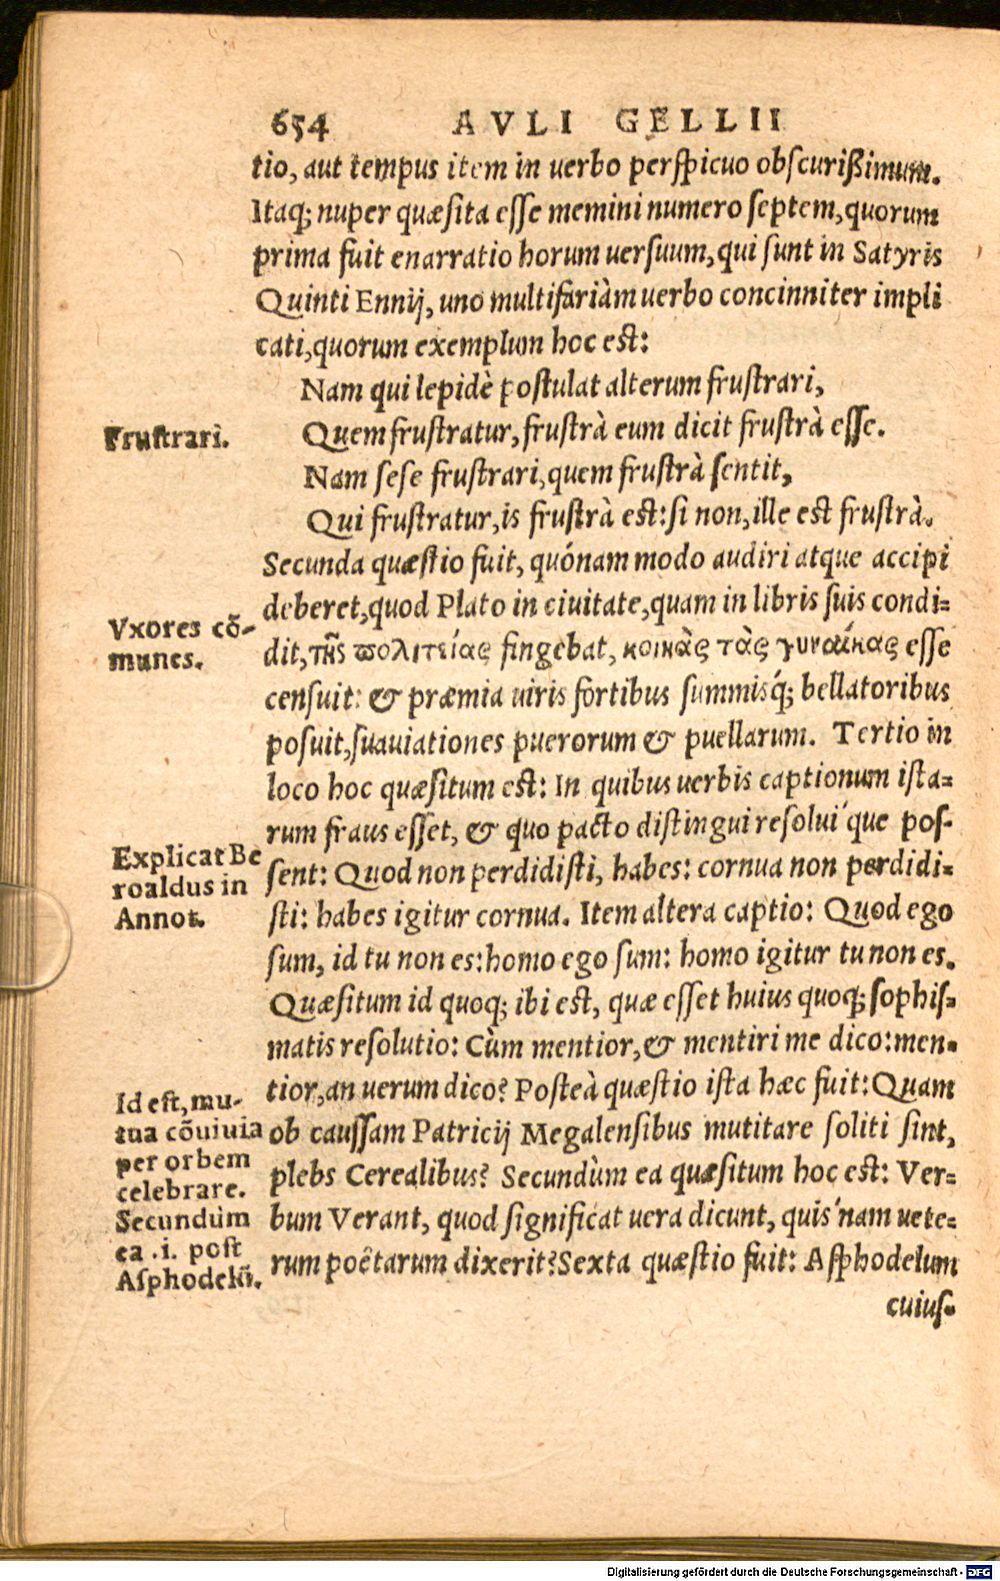 654 AVLI GELLII
tio, aut tempus item in uerbo perſpicuo obſcurißimum.
Itaq; nuper quæſita eſſe memini numero ſeptem, quorum
prima fuit enarratio horum uerſuum, qui ſunt in Satyris
Quinti Ennij, uno multifariàm uerbo concinniter impli
cati, quorum exemplum hoc eſt:
Nam qui lepidè poſtulat alterum fruſtrari,
Fruſtrari.
Quem fruſtratur, fruſtrà eum dicit fruſtrà eſſe.
Nam ſeſe fruſtrari, quem fruſtrà ſentit,
Qui fruſtratur, is fruſtrà eſt: ſi non, ille eſt fruſtrà.
Secunda quæſtio fuit, quónam modo audiri atque accipi
deberet, quod Plato in ciuitate, quam in libris ſuis condi-
Vxores cõ-
munes.
dit, τῆς πολιτείας fingebat, κοινὰς τὰς γυναῖκας eſſe
cenſuit: & præmia uiris fortibus ſummisq́; bellatoribus
poſuit, ſuauiationes puerorum & puellarum. Tertio in
loco hoc quæſitum eſt: In quibus uerbis captionum iſta-
rum fraus eſſet, & quo pacto diſtingui reſolui´que poſ-
Explicat Be
roaldus in
Annot.
ſent: Quod non perdidiſti, habes: cornua non perdidi-
ſti: habes igitur cornua. Item altera captio: Quod ego
ſum, id tu non es: homo ego ſum: homo igitur tu non es.
Quæſitum id quoq; ibi eſt, quæ eſſet huius quoq; ſophiſ-
matis reſolutio: Cùm mentior, & mentiri me dico: men-
tior, an uerum dico? Poſteà quæſtio iſta hæc fuit: Quam
Id eſt, mu-
tua cõuiuia
per orbem
celebrare.
Secundùm
ea .i. poſt
Aſphodelũ.
ob cauſſam Patricij Megalenſibus mutitare ſoliti ſint,
plebs Cerealibus? Secundùm ea quæſitum hoc eſt: Ver-
bum Verant, quod ſignificat uera dicunt, quis´nam uete-
rum poëtarum dixerit? Sexta quæſtio fuit: Aſphodelum
cuiuſ-
Digitalisierung gefördert durch die Deutsche Forschungsgemeinschaft - DFG